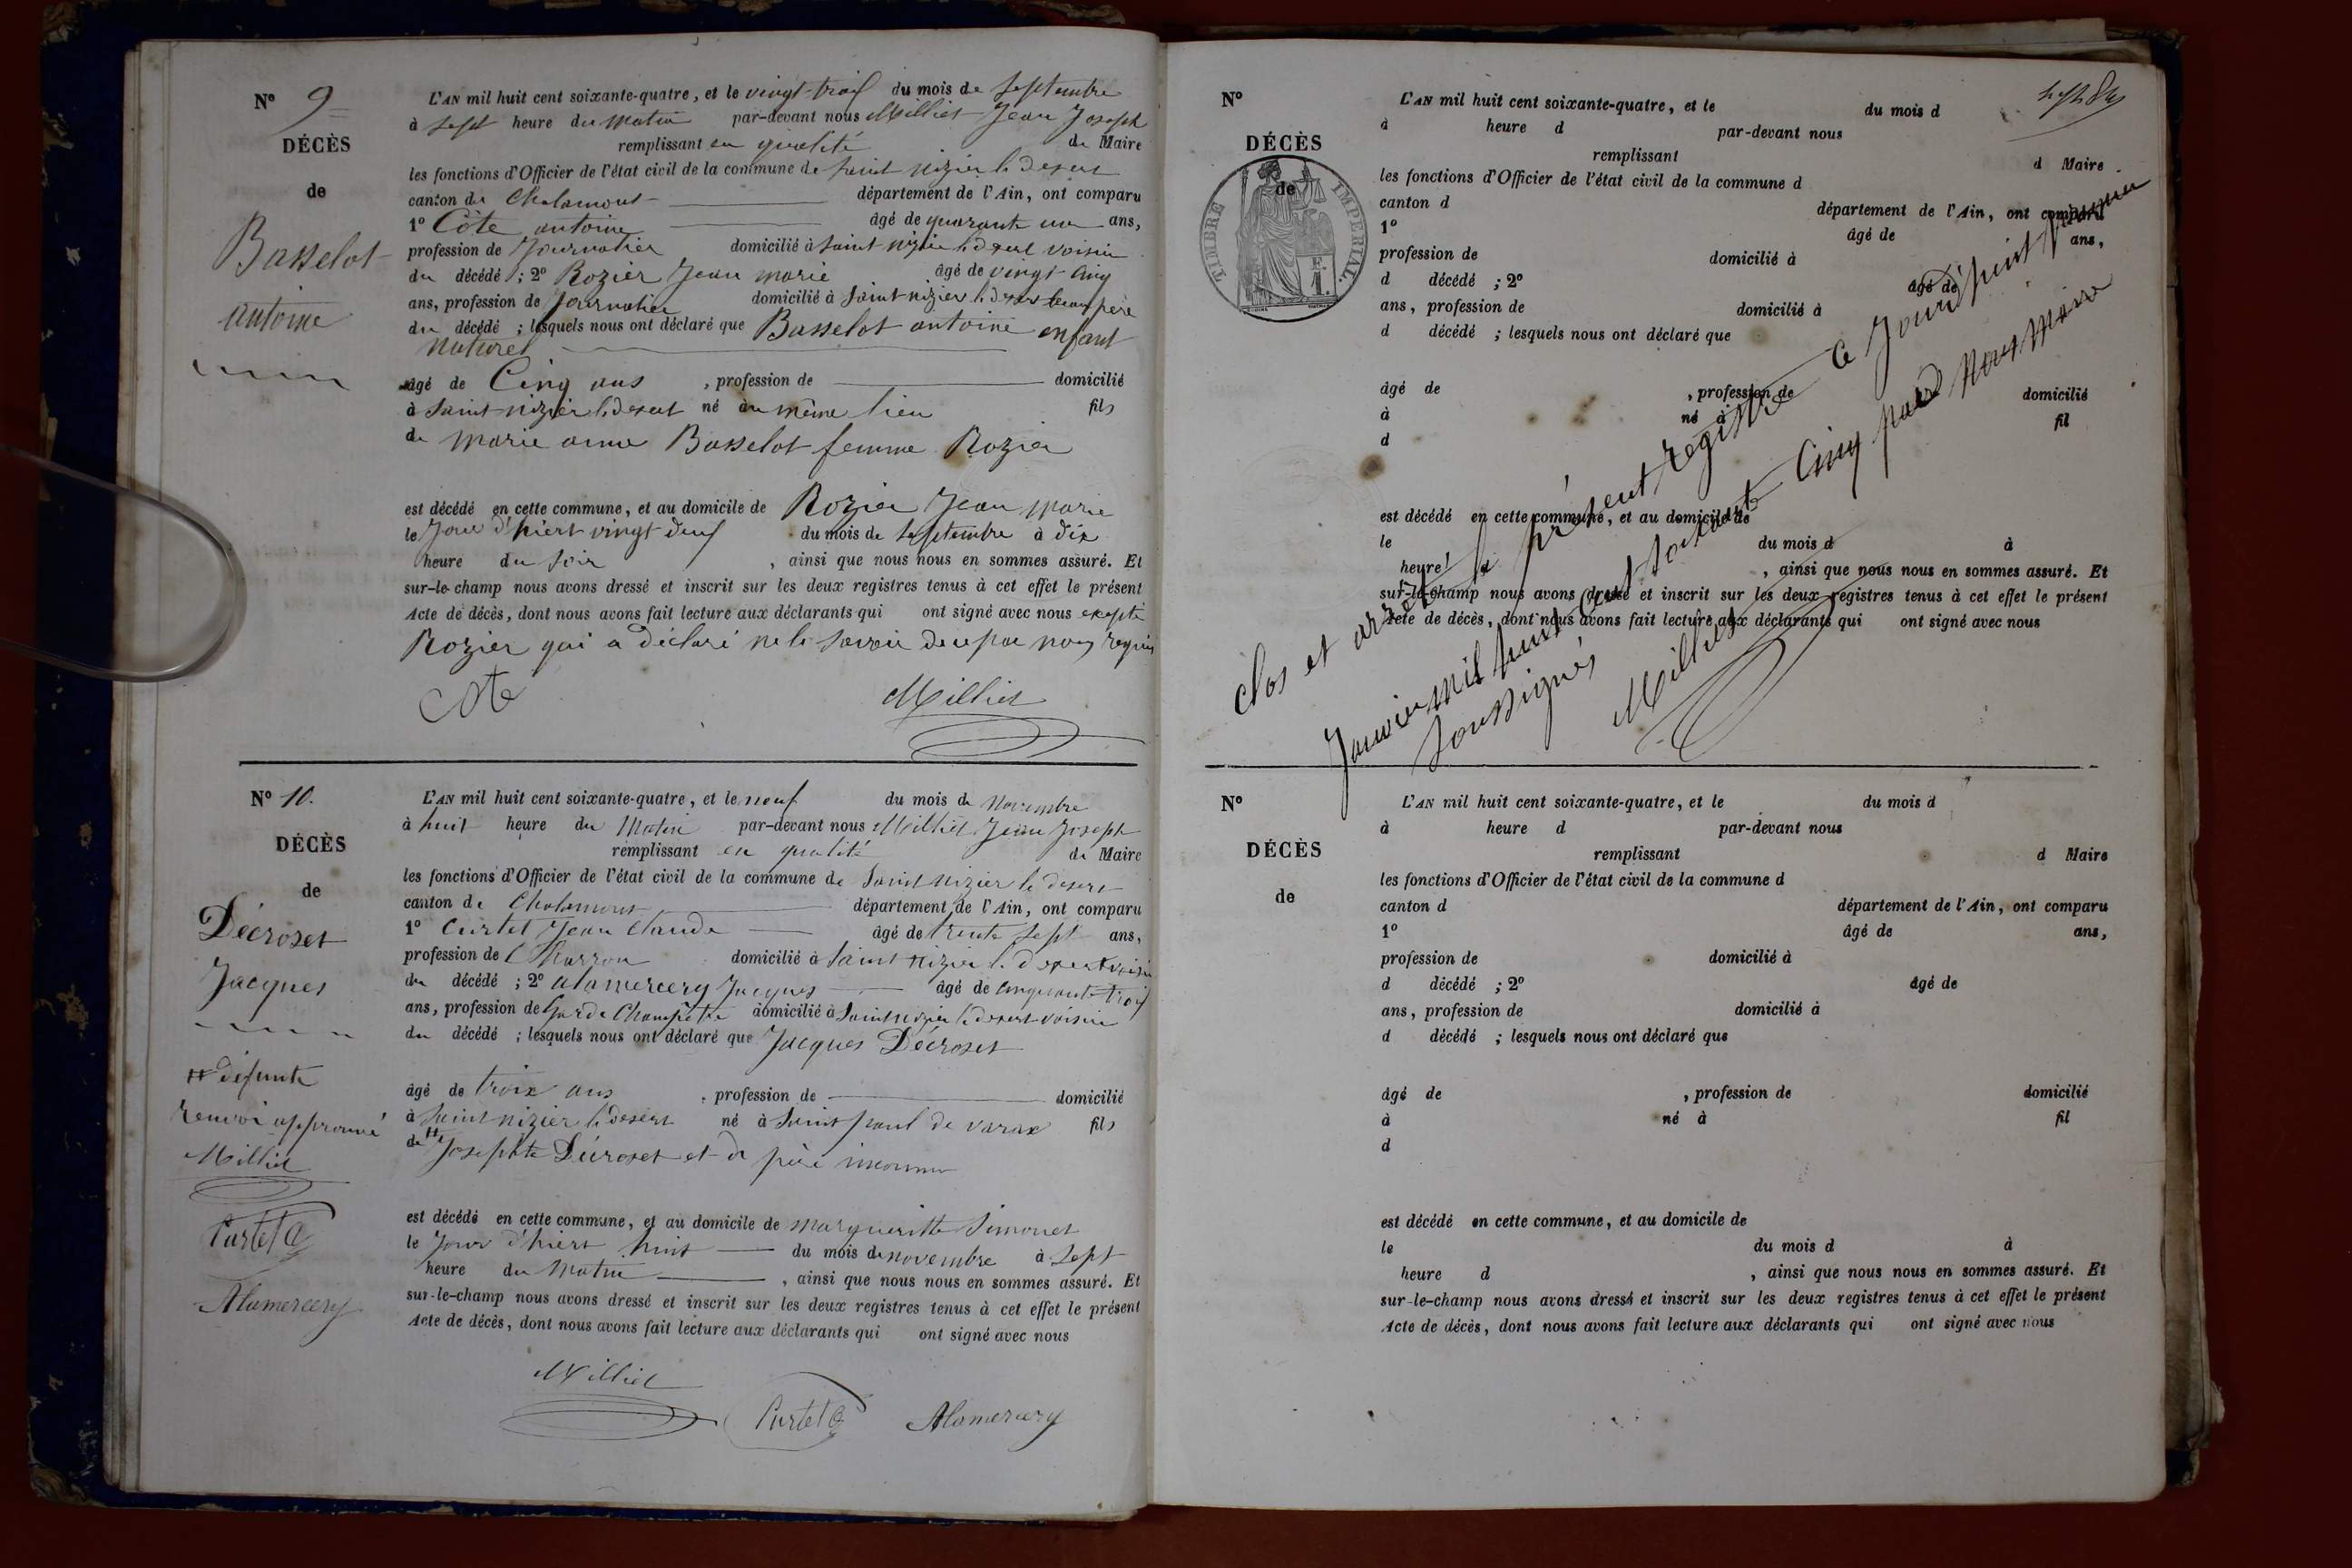 N° 9
DÉCÈS
de
Basselot
antoine
L'AN mil huit cent soixante-quatre, et le vingt-trois du mois de Septembre
à sept heure du matin par-devant nous Milliet Jean Joseph
remplissant en qualité de Maire
les fonctions d'Officier de l'état civil de la commune de Saint nizier le desert
canton de Chalamont département de l'Ain, ont comparu
1° Côte antoine âgé de quarante un ans,
profession de Journalier domicilié à Saint nizier le desert voisin
du décédé ; 2° Rozier Jean marie âgé de vingt cinq
ans, profession de Journalier domicilié à Saint nizier le desert beaupère
du décédé ; lesquels nous ont déclaré que Basselot antoine enfant
naturel
âgé de Cinq ans , profession de domicilié
à Saint nizier le desert né au même lieu fils
de marie anne Basselot femme Rozier
est décédé en cette commune, et au domicile de Rozier Jean marie
le Jour d'hiert vingt deux du mois de Septembre à dix
heure du soir , ainsi que nous nous en sommes assuré. Et
sur-le-champ nous avons dressé et inscrit sur les deux registres tenus à cet effet le présent
Acte de décès, dont nous avons fait lecture aux déclarants qui ont signé avec nous excepté
Rozier qui a déclaré ne le savoir de ce par nous requis
Cote Milliet
N° 10.
DÉCÈS
de
Décroset
Jacques
défunte
renvoi approuvé
Milliet
Curtet
Alamercery
L'AN mil huit cent soixante-quatre, et le neuf du mois de Novembre
à huit heure du Matin par-devant nous Milliet Jean Joseph
remplissant en qualité de Maire
les fonctions d'Officier de l'état civil de la commune de Saint nizier le desert
canton de Chalamont département de l'Ain, ont comparu
1° Curtet Jean Claude âgé de trente sept ans,
profession de Charron domicilié à Saint nizier le desert voisin
du décédé ; 2° alamercery Jacques âgé de cinquante trois
ans, profession de Garde Champêtre domicilié à Saint nizier le desert voisin
du décédé ; lesquels nous ont déclaré que Jacques Décroset
âgé de troix ans , profession de domicilié
à Saint nizier le desert né à Saint paul de varax fils
de Josephte Décroset et de père inconnu
est décédé en cette commune, et au domicile de margueritte Simonet
le Jour d'hiert huit du mois de novembre à sept
heure du Matin , ainsi que nous nous en sommes assuré. Et
sur-le-champ nous avons dressé et inscrit sur les deux registres tenus à cet effet le présent
Acte de décès, dont nous avons fait lecture aux déclarants qui ont signé avec nous
Milliet Curtet Alamercery
N°
DÉCÈS
de
TIMBRE IMPÉRIAL
L'AN mil huit cent soixante-quatre, et le du mois d
à heure d par-devant nous
remplissant d Maire
les fonctions d'Officier de l'état civil de la commune d
canton d département de l'Ain, ont comparu
1° âgé de ans,
profession de domicilié à
d décédé ; 2° âgé de
ans, profession de domicilié à
d décédé ; lesquels nous ont déclaré que
âgé de , profession de domicilié
à né à fil
d
est décédé en cette commune, et au domicile de
le du mois d à
heure d , ainsi que nous nous en sommes assuré. Et
sur-le-champ nous avons dressé et inscrit sur les deux registres tenus à cet effet le présent
Acte de décès, dont nous avons fait lecture aux déclarants qui ont signé avec nous
Clos et arrêté le présent registre ce Jourd'huit premier
Janvier mil huit cent soixante Cinq par Nous Maire
Soussignés
Milliet
N°
DÉCÈS
de
L'AN mil huit cent soixante-quatre, et le du mois d
à heure d par-devant nous
remplissant d Maire
les fonctions d'Officier de l'état civil de la commune d
canton d département de l'Ain, ont comparu
1° âgé de ans,
profession de domicilié à
d décédé ; 2° âgé de
ans, profession de domicilié à
d décédé ; lesquels nous ont déclaré que
âgé de , profession de domicilié
à né à fil
d
est décédé en cette commune, et au domicile de
le du mois d à
heure d , ainsi que nous nous en sommes assuré. Et
sur-le-champ nous avons dressé et inscrit sur les deux registres tenus à cet effet le présent
Acte de décès, dont nous avons fait lecture aux déclarants qui ont signé avec nous